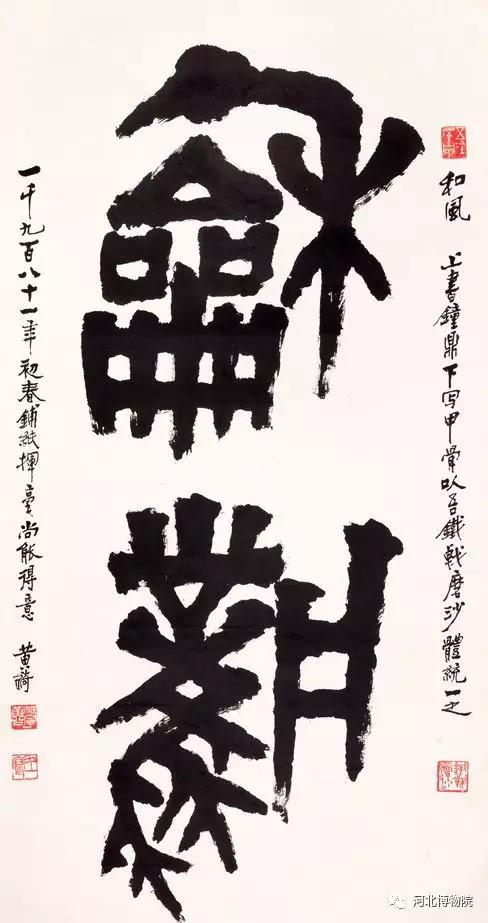 龢風
和風 上書鐘鼎下写甲骨以吾鐵戟磨沙體統一之
一千九百八十一年初春鋪紙揮毫尚能得意 黄綺
河北博物院